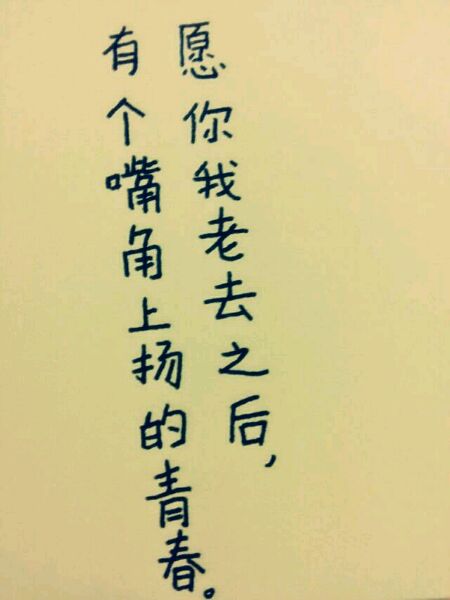 愿你我老去之后，
有个嘴角上扬的青春。